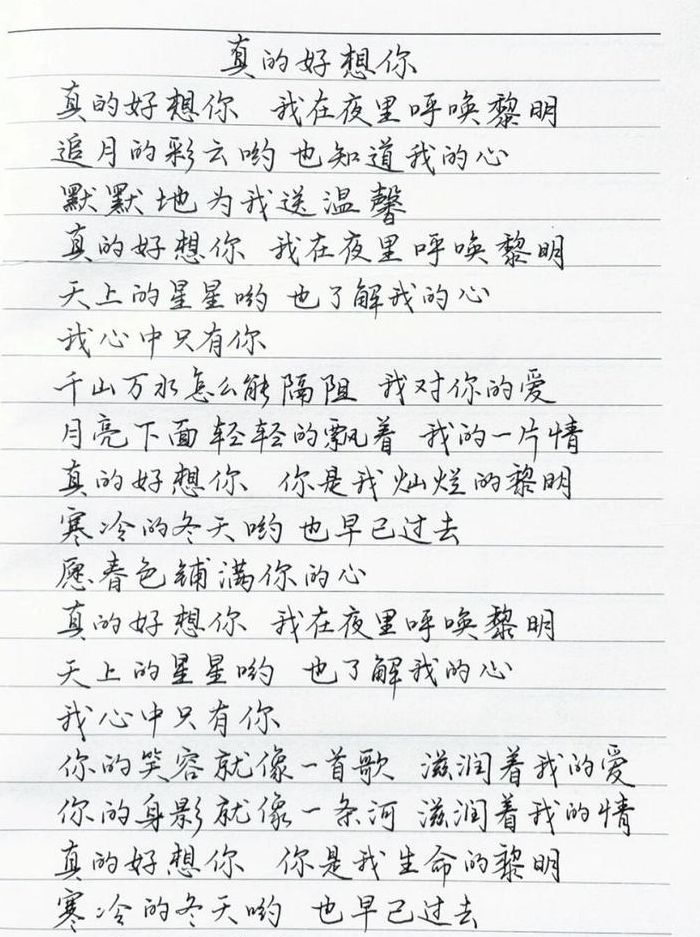 真的好想你
真的好想你 我在夜里呼唤黎明
追月的彩云哟 也知道我的心
默默地为我送温馨
真的好想你 我在夜里呼唤黎明
天上的星星哟 也了解我的心
我心中只有你
千山万水怎么能隔阻 我对你的爱
月亮下面轻轻的飘着 我的一片情
真的好想你 你是我灿烂的黎明
寒冷的冬天哟 也早已过去
愿春色铺满你的心
真的好想你 我在夜里呼唤黎明
天上的星星哟 也了解我的心
我心中只有你
你的笑容就像一首歌 滋润着我的爱
你的身影就像一条河 滋润着我的情
真的好想你 你是我生命的黎明
寒冷的冬天哟 也早已过去